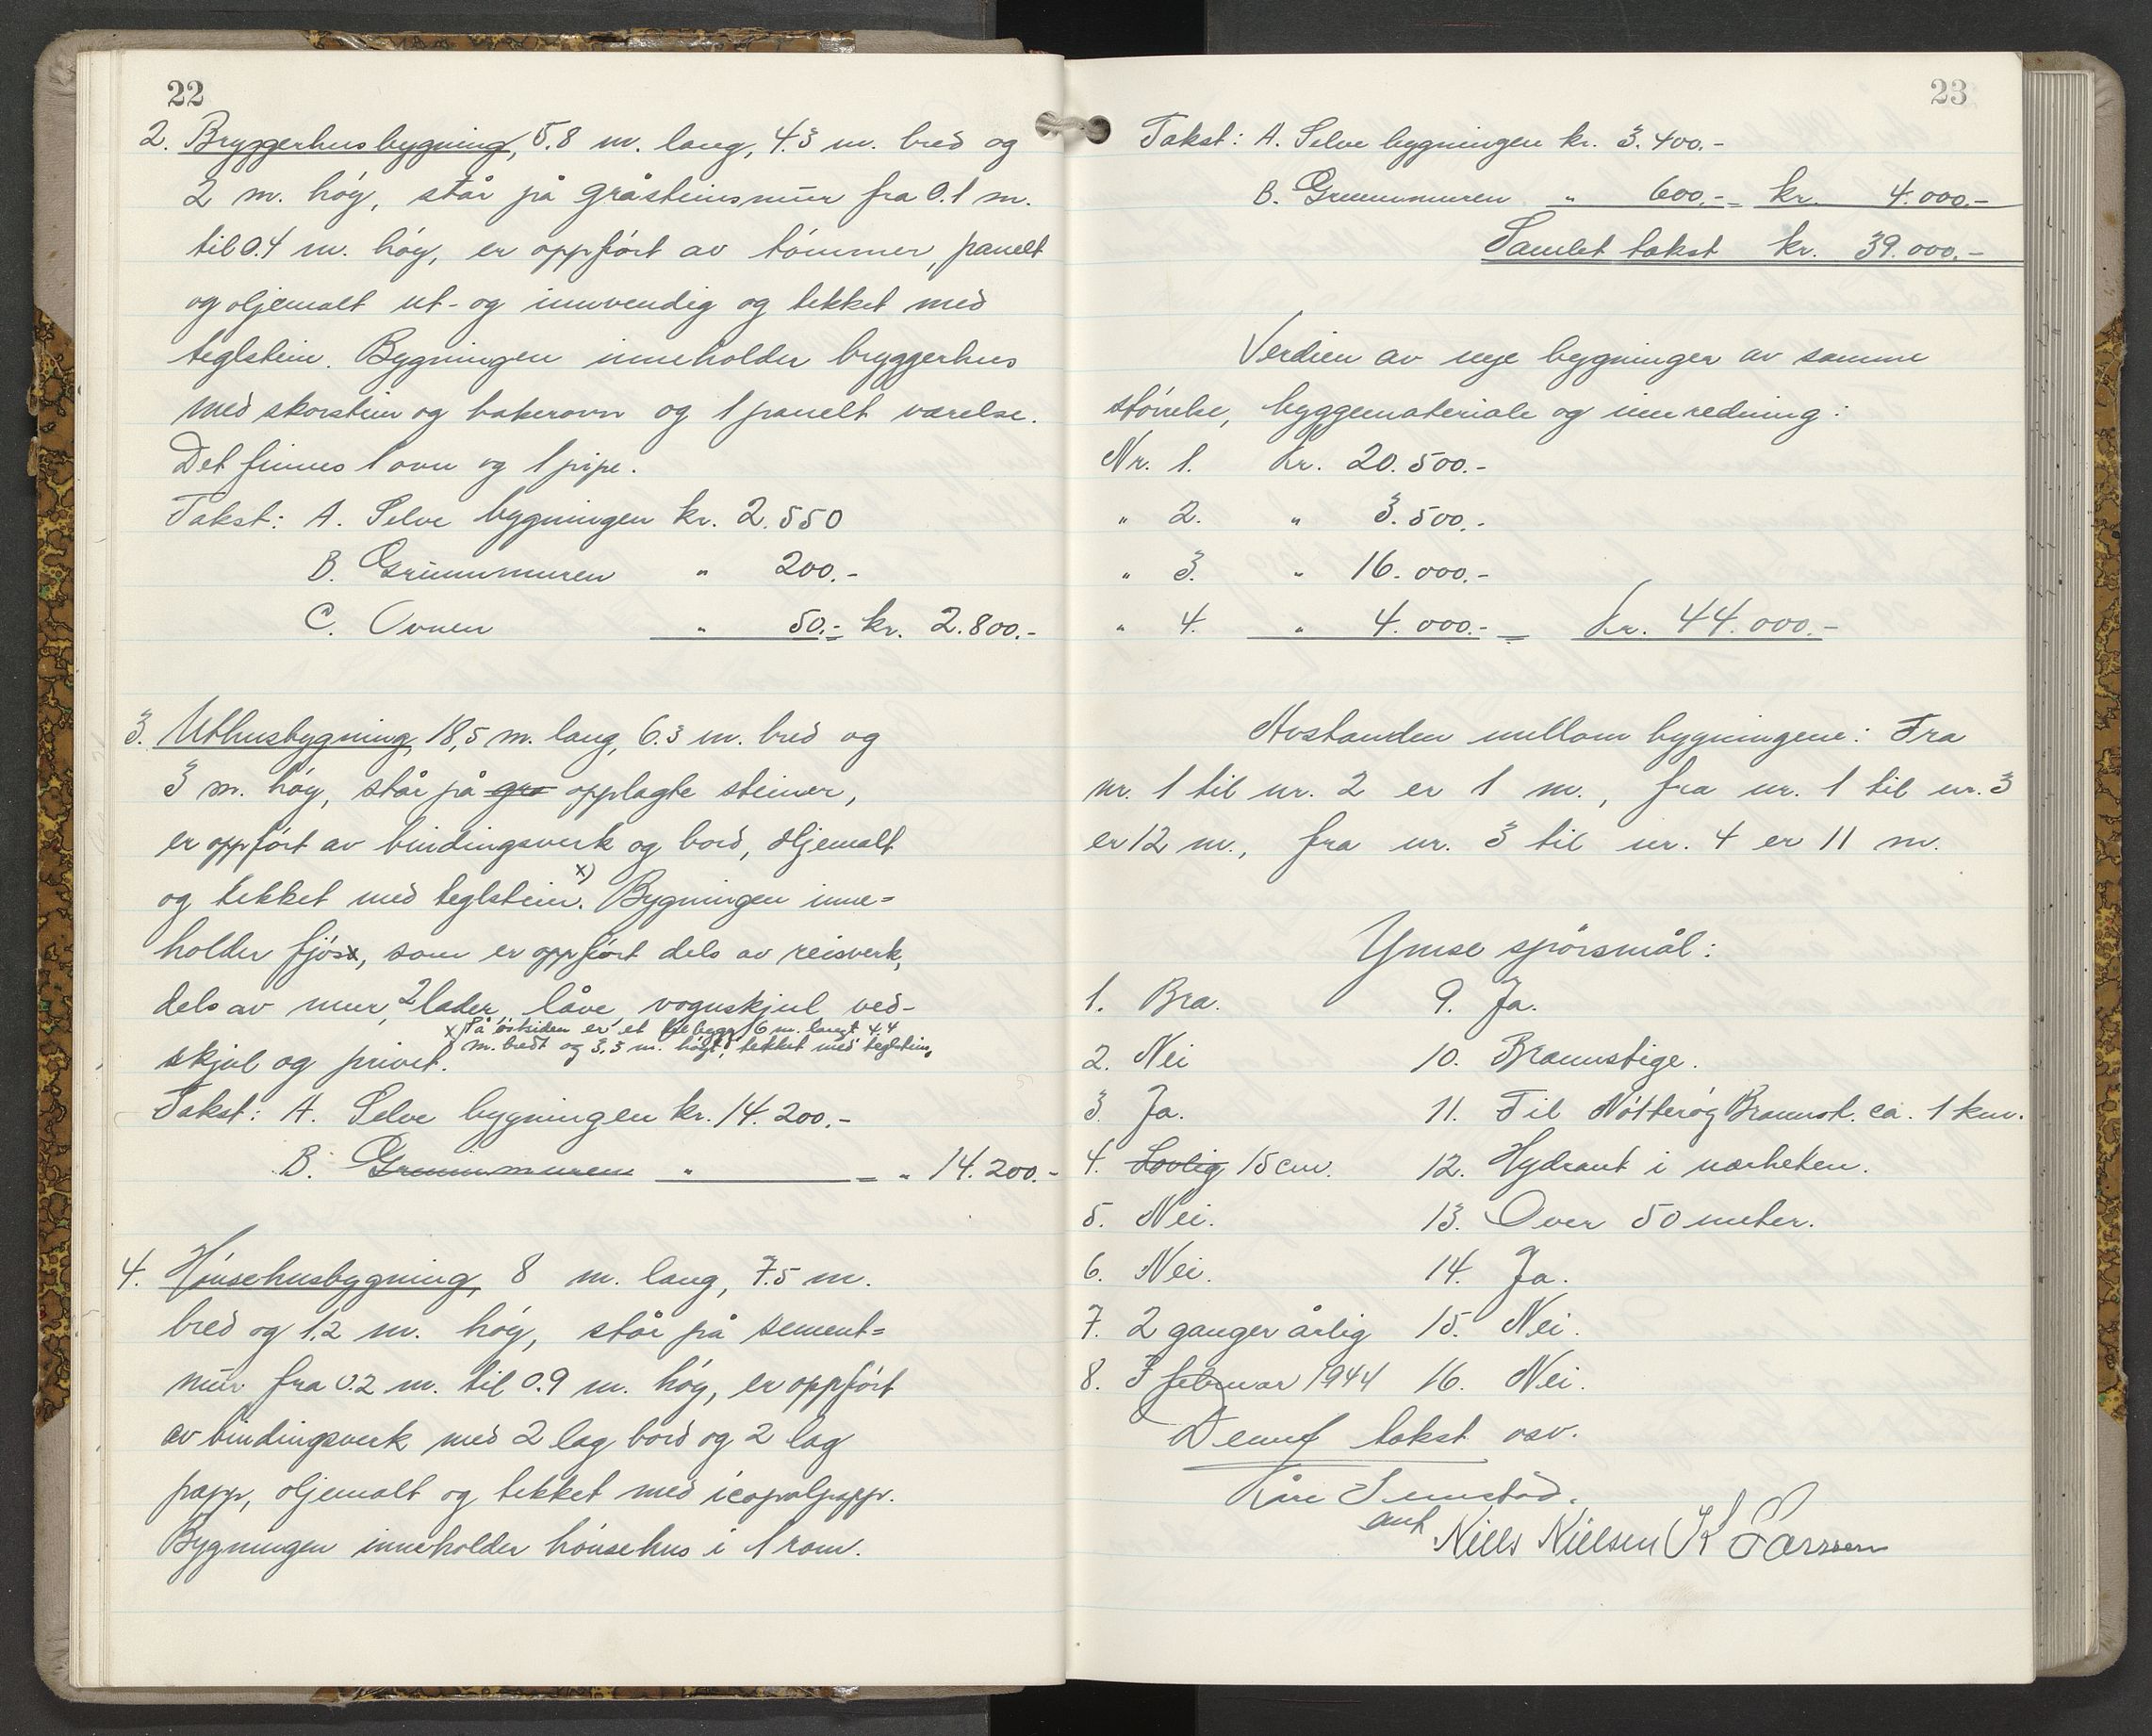 22
2. Bryggerhusbygning, 5.8 m. lang, 4.3 m. bred og
2 m. høg, står på gråsteinsmur fra 0.1 m.
til 0.4 m. høg, er oppført av tømmer, panelt
og oljemalt ut- og innvendig og tekket med
teglstein. Bygningen inneholder bryggerhus
med skorstein og bakerovn og 1 panelt værelse.
Det finnes 1 ovn og 1 pipe.
Takst: A. Selve bygningen kr. 2.550
B. Grunnmuren " 200.-
C. Ovnen " 50.- = kr. 2.800.-
3. Uthusbygning, 18,5 m. lang, 6.3 m. bred og
3 m. høg, står på gra opplagte steiner,
er oppført av bindingsverk og bord, oljemalt
og tekket med teglstein. x) Bygningen inne=
holder fjøs, som er oppført dels av reisverk,
dels av mur, 2 lader, låve vognskjul ved-
x) På østsiden er et tilbygg 16 m. langt 4.4
m. bredt og 3,3 m. høgt, tekket med teglstein.
skjul og privet.
Takst: A. Selve bygningen kr. 14.200.-
B. Grunnmuren " = " 14.200.-
4. Hønsehusbygning, 8 m. lang, 7.5 m.
bred og 1.2 m. høg, står på sement=
mur fra 0.2 m. til 0.9 m. høg, er oppført
av bindingsverk med 2 lag bord og 2 lag
papp, oljemalt og tekket med icopalpapp.
Bygningen inneholder hønsehus i 1 rom.
23
Takst: A. Selve bygningen kr. 3.400.-
B. Grunnmuren " 600.- = kr. 4.000.-
Samlet takst kr. 39.000.-
Verdien av nye bygninger av samme
størrelse, byggemateriale og innredning:
Nr. 1. kr. 20.500.-
" 2. " 3.500.-
" 3. " 16.000.-
" 4. " 4.000.- = kr. 44.000.-
Avstanden mellom bygningene: Fra
nr. 1 til nr. 2 er 1 m., fra nr. 1 til nr. 3
er 12 m., fra nr. 3 til nr. 4 er 11 m.
Ymse spørsmål:
1. Bra. 9. Ja.
2. Nei 10. Brannstige.
3. Ja. 11. Til Nøtterøy Brannst. ca. 1 km.
4. Lovlig 15 cm. 12. Hydrant i nærheten.
5. Nei. 13. Over 50 meter.
6. Nei. 14. Ja.
7. 2 ganger årlig 15. Nei.
8. 3 februar 1944 16. Nei.
Denne takst osv.
Kåre Semstad.
Niels Nielsen K Larssen